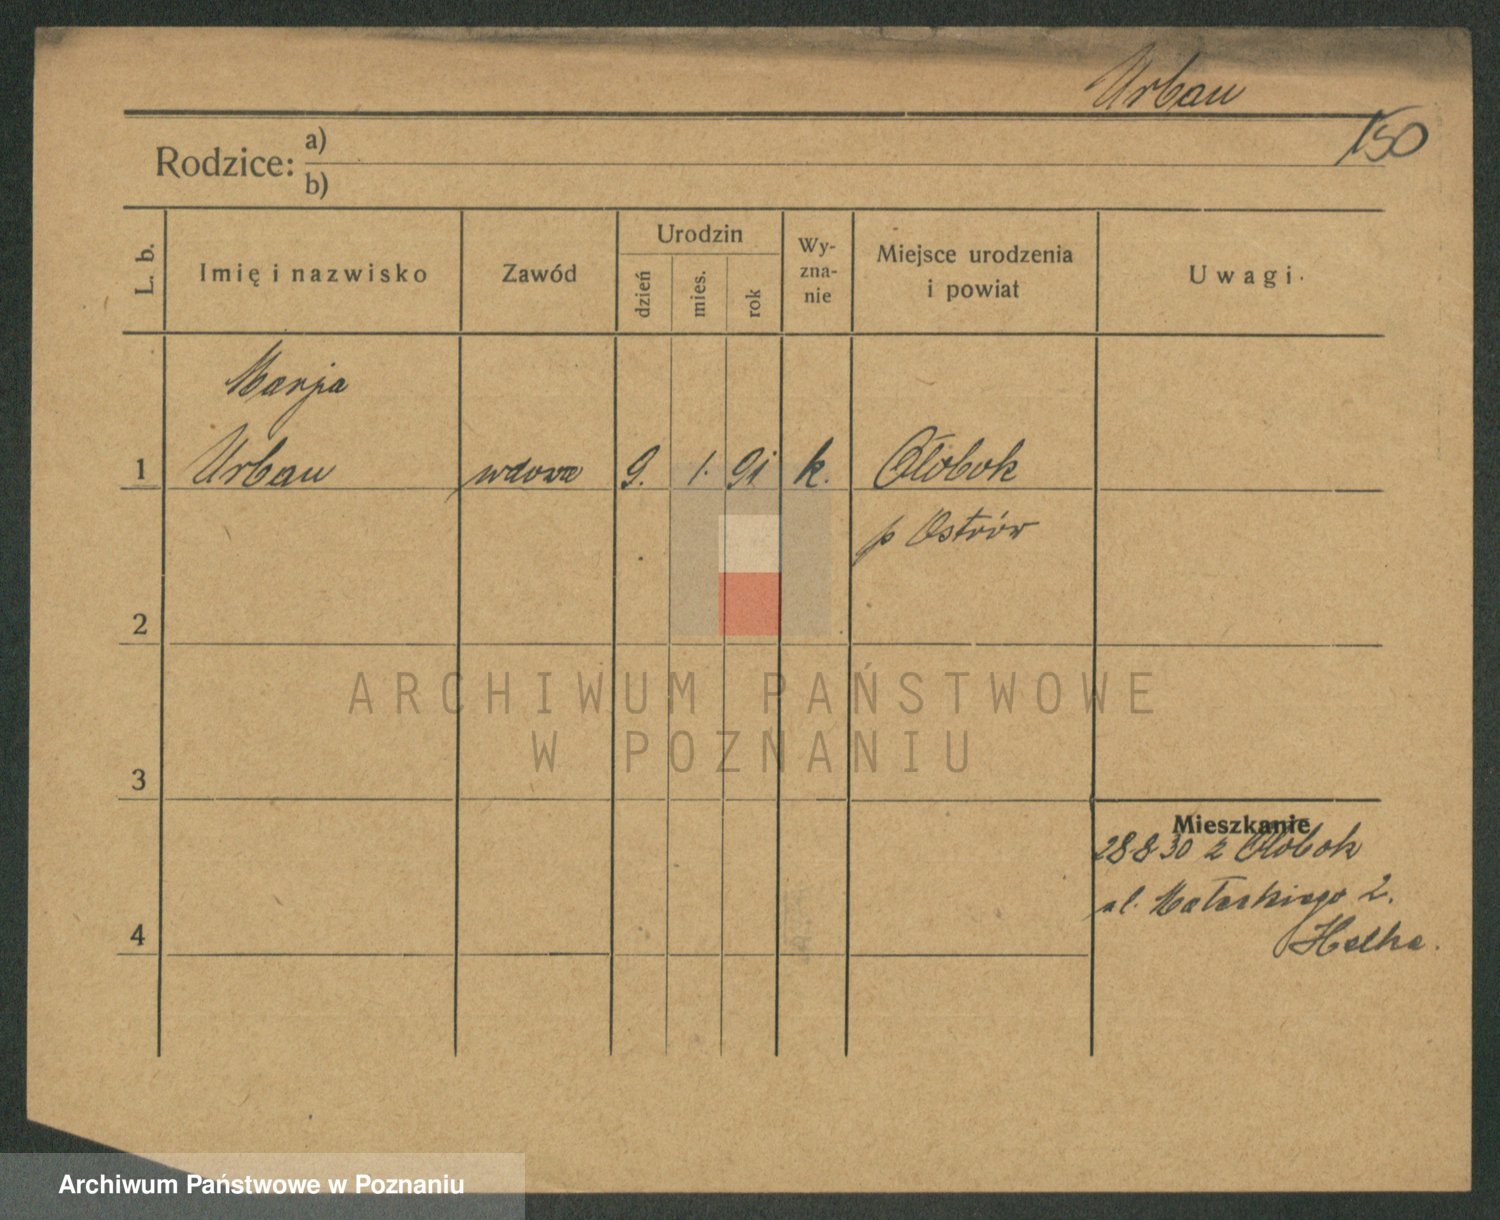 Urban
150
Rodzice: a)
b)
L. b. Imię i nazwisko Zawód Urodzin dzień mies. rok Wy-zna-nie Miejsce urodzenia i powiat Uwagi.
Marja
1 Urban wdowa 9. 1. 91 k. Ołobok
p Ostrów
2
ARCHIWUM PAŃSTWOWE
W POZNANIU
3
Mieszkanie
28 8 30 z Ołobok
ul. Małeckiego 2.
4
Archiwum Państwowe w Poznaniu